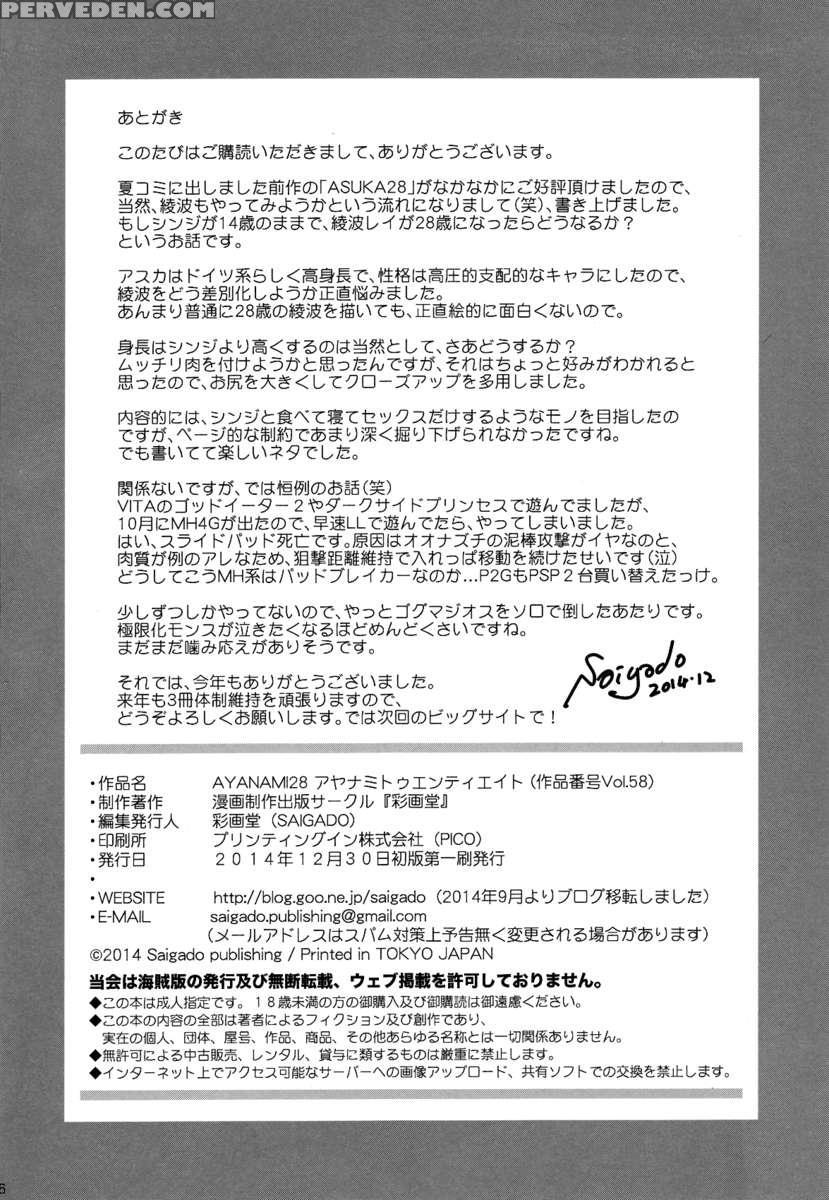 PERVEDEN.COM
あとがき
このたびはご購読いただきまして、ありがとうございます。
夏コミに出しました前作の「ASUKA28」がなかなかにご好評頂けましたので、
当然、綾波もやってみようかという流れになりまして(笑)、書き上げました。
もしシンジが14歳のままで、綾波レイが28歳になったらどうなるか？
というお話です。
アスカはドイツ系らしく高身長で、性格は高圧的支配的なキャラにしたので、
綾波をどう差別化しようか正直悩みました。
あんまり普通に28歳の綾波を描いても、正直絵的に面白くないので。
身長はシンジより高くするのは当然として、さあどうするか？
ムッチリ肉を付けようかと思ったんですが、それはちょっと好みがわかれると
思ったので、お尻を大きくしてクローズアップを多用しました。
内容的には、シンジと食べて寝てセックスだけするようなモノを目指したの
ですが、ページ的な制約であまり深く掘り下げられなかったですね。
でも書いてて楽しいネタでした。
関係ないですが、では恒例のお話(笑)
VITAのゴッドイーター２やダークサイドプリンセスで遊んでましたが、
10月にMH4Gが出たので、早速LLで遊んでたら、やってしまいました。
はい、スライドパッド死亡です。原因はオオナズチの泥棒攻撃がイヤなのと、
肉質が例のアレなため、狙撃距離維持で入れっぱ移動を続けたせいです(泣)
どうしてこうMH系はパッドブレイカーなのか…P2GもPSP２台買い替えたっけ。
少しずつしかやってないので、やっとゴグマジオスをソロで倒したあたりです。
極限化モンスが泣きたくなるほどめんどくさいですね。
まだまだ噛み応えがありそうです。
それでは、今年もありがとうございました。
来年も3冊体制維持を頑張りますので、
どうぞよろしくお願いします。では次回のビッグサイトで！
Saigado
2014.12
・作品名 AYANAMI28 アヤナミトゥエンティエイト (作品番号Vol.58)
・制作著作 漫画制作出版サークル『彩画堂』
・編集発行人 彩画堂 (SAIGADO)
・印刷所 プリンティングイン株式会社 (PICO)
・発行日 ２０１４年１２月３０日初版第一刷発行
・
・WEBSITE http://blog.goo.ne.jp/saigado (2014年9月よりブログ移転しました)
・E-MAIL saigado.publishing@gmail.com
(メールアドレスはスパム対策上予告無く変更される場合があります)
©2014 Saigado publishing / Printed in TOKYO JAPAN
当会は海賊版の発行及び無断転載、ウェブ掲載を許可しておりません。
◆この本は成人指定です。１８歳未満の方の御購入及び御購読は御遠慮ください。
◆この本の内容の全部は著者によるフィクション及び創作であり、
実在の個人、団体、屋号、作品、商品、その他あらゆる名称とは一切関係ありません。
◆無許可による中古販売、レンタル、貸与に類するものは厳重に禁止します。
◆インターネット上でアクセス可能なサーバーへの画像アップロード、共有ソフトでの交換を禁止します。